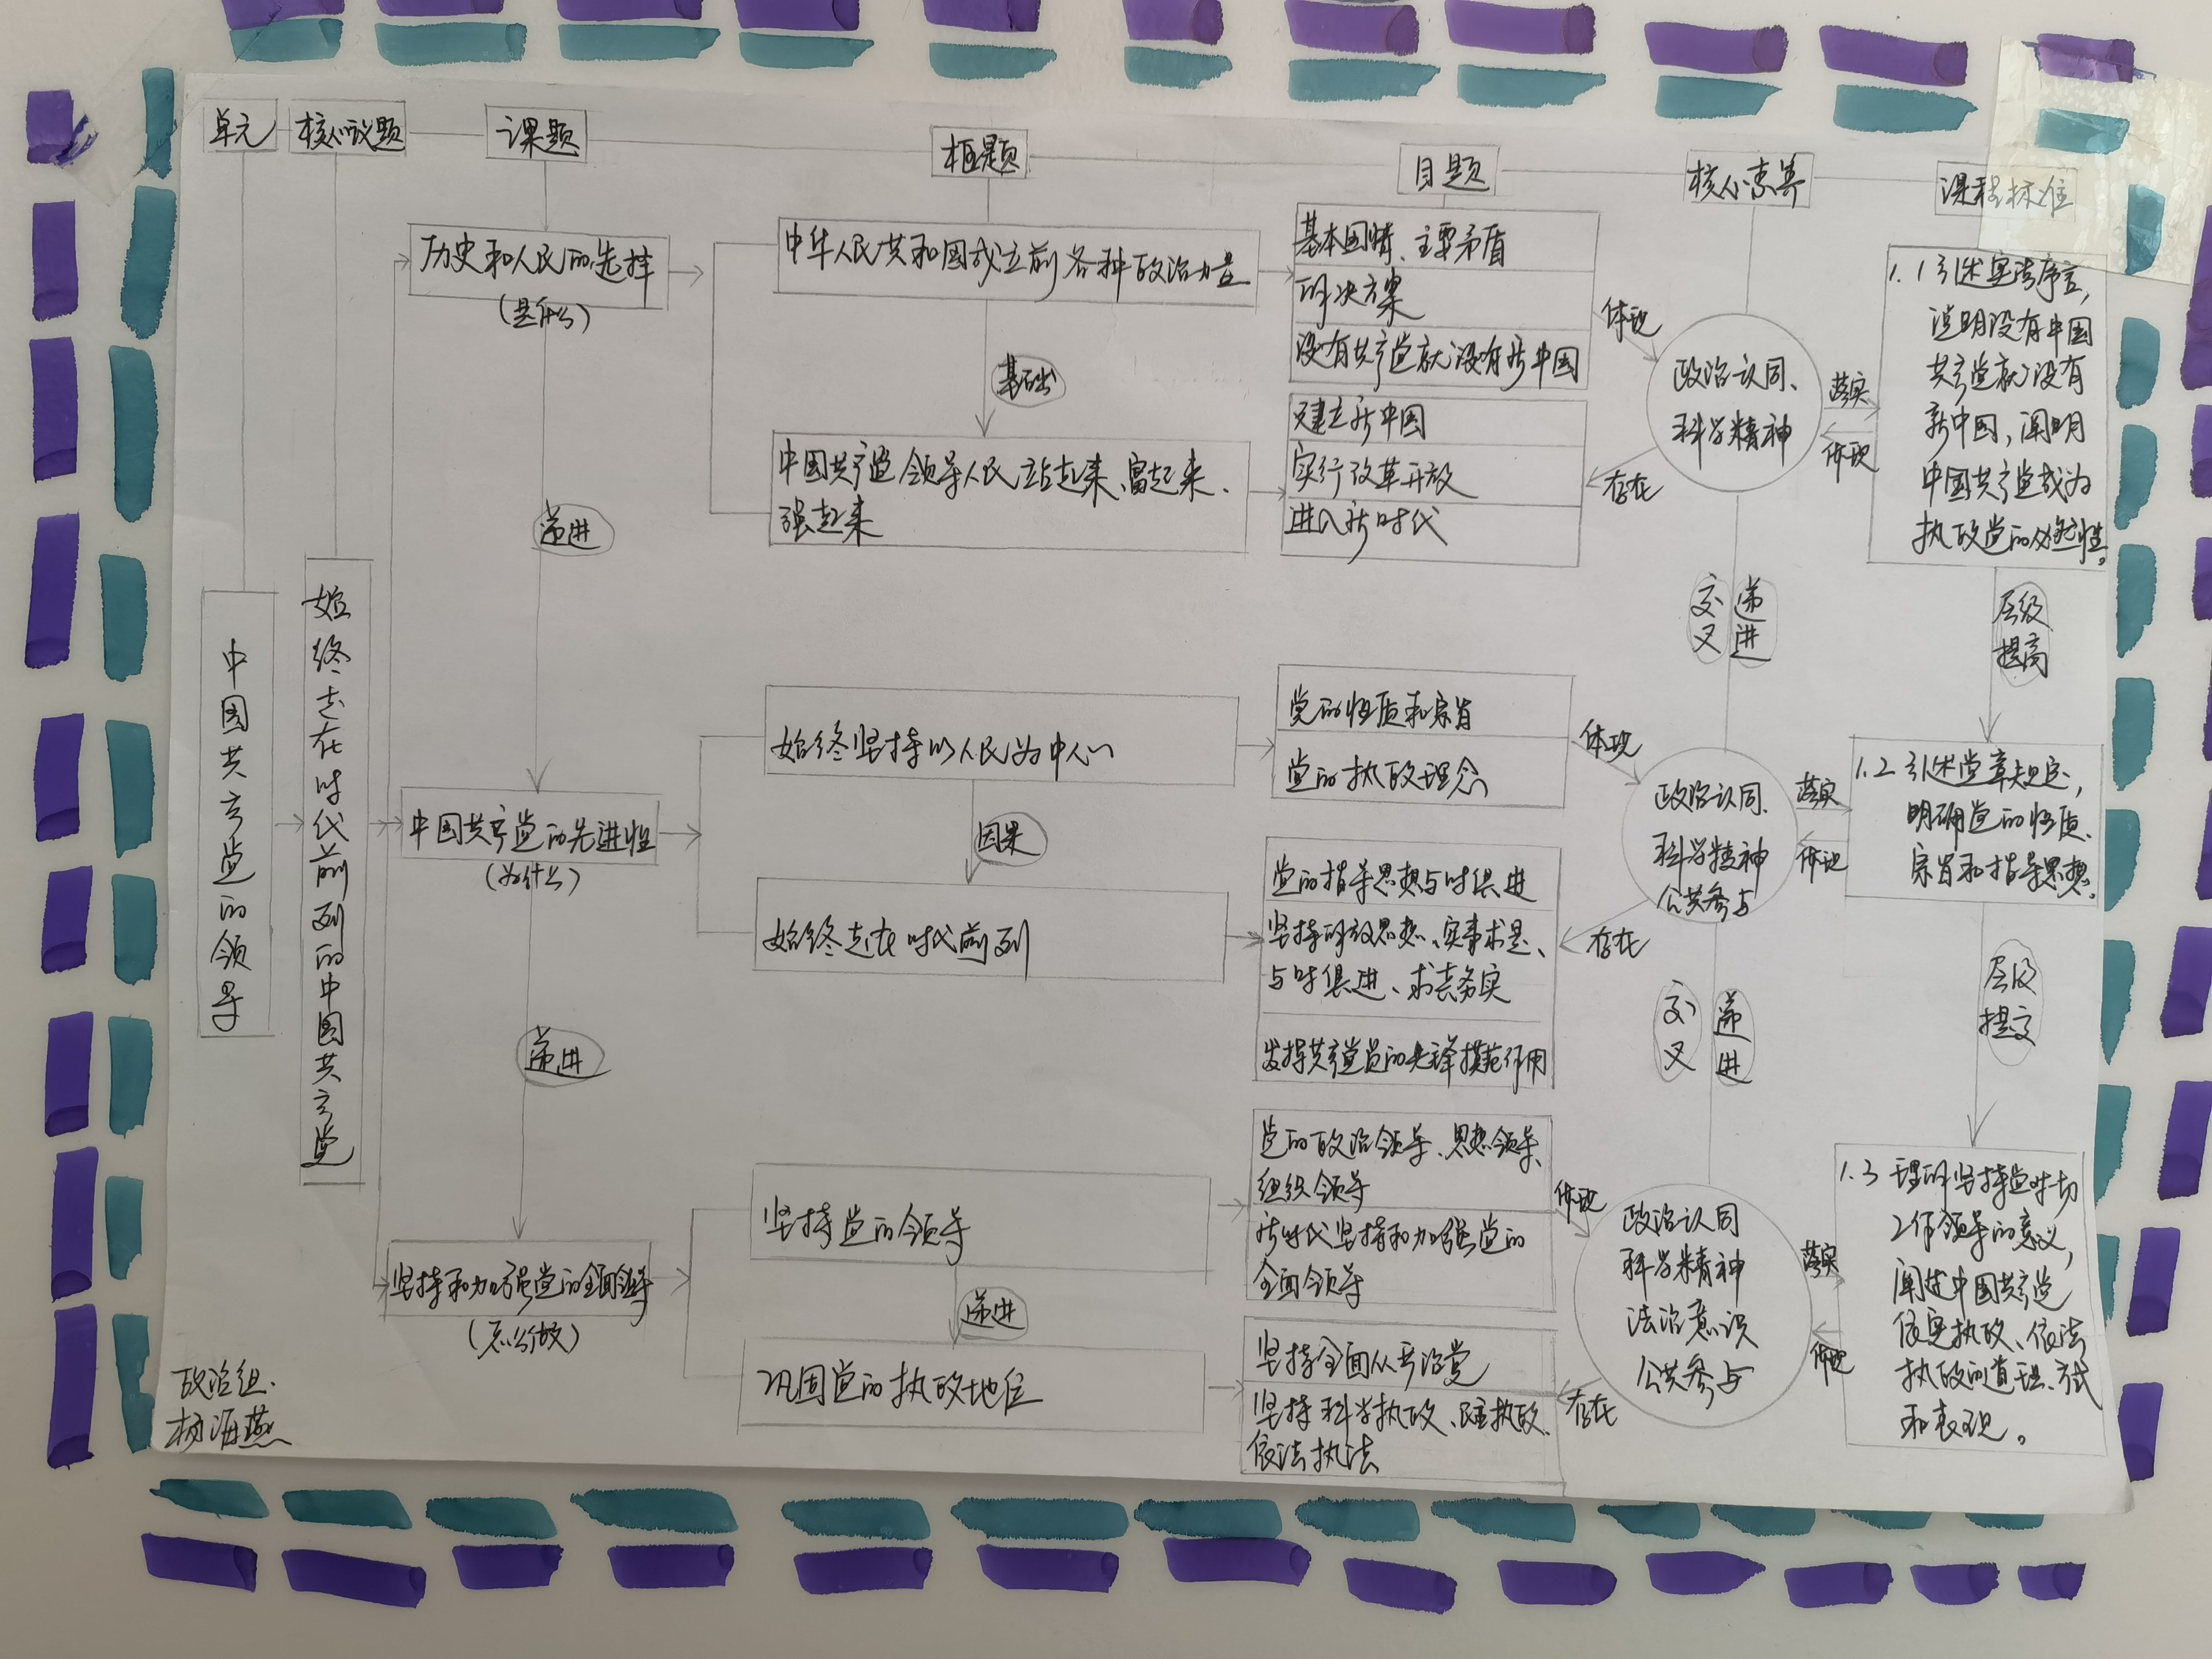 单元
核心议题
课题
框题
目题
核心素养
课程标准
中国共产党的领导
始终走在时代前列的中国共产党
历史和人民的选择
(是什么)
递进
中国共产党的先进性
(为什么)
递进
坚持和加强党的全面领导
(怎么做)
中华人民共和国成立前各种政治力量
基础
中国共产党领导人民站起来、富起来、
强起来
始终坚持以人民为中心
因果
始终走在时代前列
坚持党的领导
递进
巩固党的执政地位
基本国情、主要矛盾
解决方案
没有共产党就没有新中国
建立新中国
实行改革开放
进入新时代
党的性质和宗旨
党的执政理念
党的指导思想与时俱进
坚持解放思想、实事求是、
与时俱进、求真务实
发挥共产党员的先锋模范作用
党的政治领导、思想领导、
组织领导
新时代坚持和加强党的
全面领导
坚持全面从严治党
坚持科学执政、民主执政、
依法执法
体现
存在
政治认同、
科学精神
落实
体现
交叉
递进
体现
存在
政治认同、
科学精神
公共参与
落实
体现
交叉
递进
体现
存在
政治认同
科学精神
法治意识
公共参与
落实
体现
1.1引述宪法序言,
说明没有中国
共产党就没有
新中国,阐明
中国共产党成为
执政党的必然性。
层级
提高
1.2引述党章规定,
明确党的性质、
宗旨和指导思想。
层级
提高
1.3 理解坚持党对一切
工作领导的意义,
阐述中国共产党
依宪执政、依法
执政的道理、方式
和表现。
政治组.
杨海燕